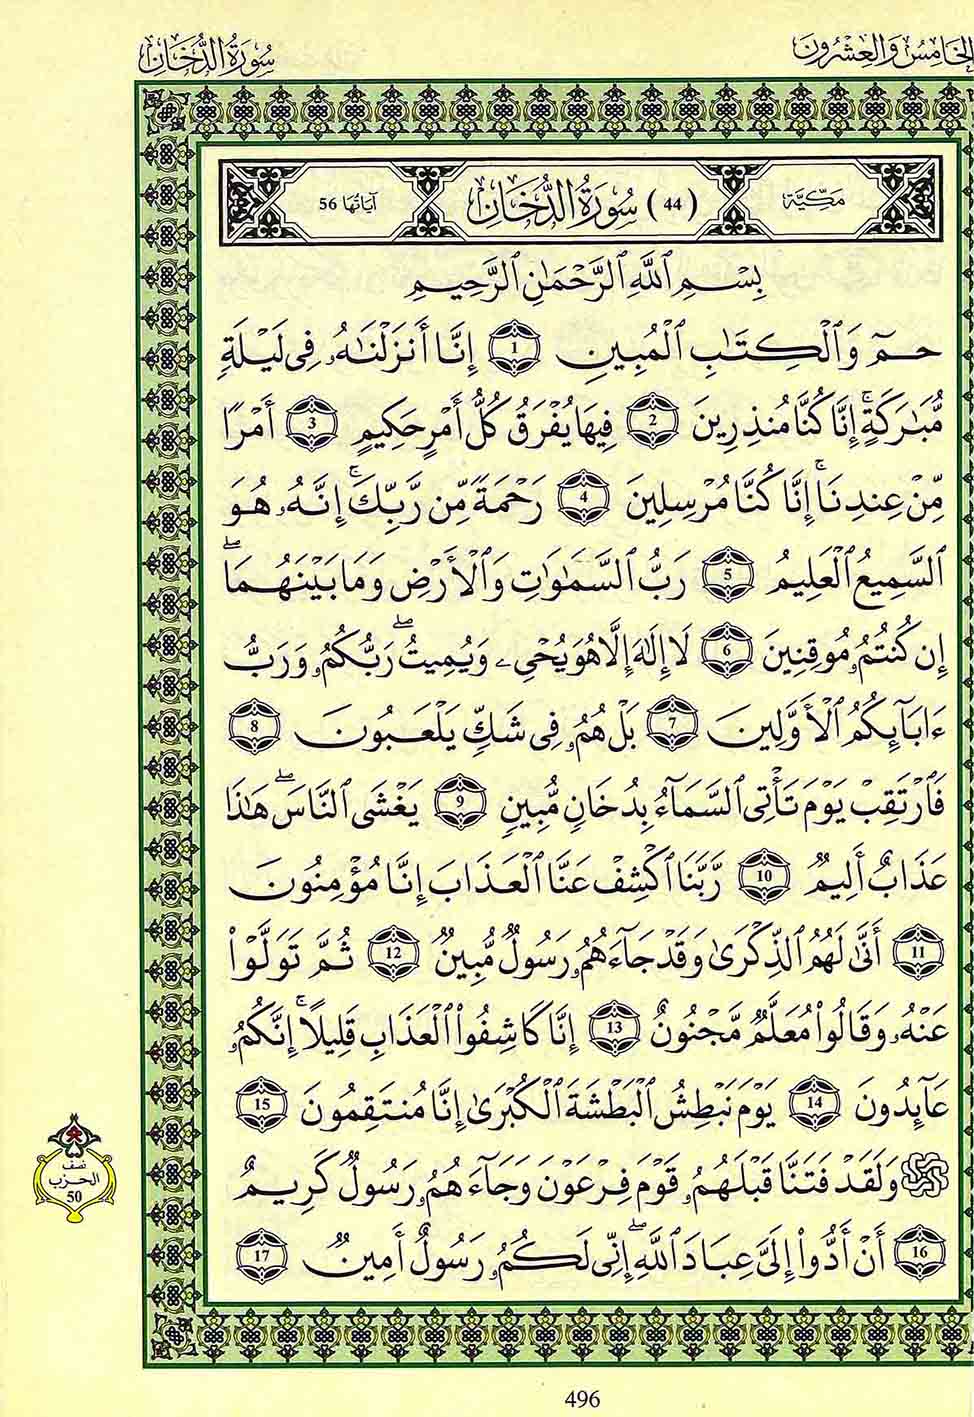 الخَامِسُ وَالعِشْرُونَ
سُورَةُ الدُّخَانِ
مَكِّيَّة
(44) سُورَةُ الدُّخَانِ
آيَاتُهَا 56
بِسْمِ اِ۬للَّهِ اِ۬لرَّحْمَٰنِ اِ۬لرَّحِيمِ
حمٓ وَالْكِتَٰبِ اِ۬لْمُبِينِ 1 إِنَّا أَنزَلْنَٰهُۥ فِى لَيْلَةٍ
مُّبَٰرَكَةٍۚ إِنَّا كُنَّا مُنذِرِينَ 2 فِيهَا يُفْرَقُ كُلُّ أَمْرٍ حَكِيمٍ 3 أَمْرًا
مِّنْ عِندِنَاۚ إِنَّا كُنَّا مُرْسِلِينَ 4 رَحْمَةً مِّن رَّبِّكَۚ إِنَّهُۥ هُوَ
اَ۬لسَّمِيعُ اُ۬لْعَلِيمُ 5 رَبُّ اُ۬لسَّمَٰوَٰتِ وَالْأَرْضِ وَمَا بَيْنَهُمَاۖ
إِن كُنتُمُۥ مُوقِنِينَ 6 لَا إِلَٰهَ إِلَّا هُوَ يُحْىِۦ وَيُمِيتُۖ رَبُّكُمُۥ وَرَبُّ
ءَابَآئِكُمُ اُ۬لْأَوَّلِينَ 7 بَلْ هُمُۥ فِى شَكٍّ يَلْعَبُونَ 8
فَارْتَقِبْ يَوْمَ تَأْتِى اِ۬لسَّمَآءُ بِدُخَانٍ مُّبِينٍ 9 يَغْشَى اَ۬لنَّاسَۖ هَٰذَا
عَذَابٌ أَلِيمٌ 10 رَّبَّنَا اَ۪كْشِفْ عَنَّا اَ۬لْعَذَابَ إِنَّا مُؤْمِنُونَ
11 أَنَّىٰ لَهُمُ اُ۬لذِّكْرَىٰ وَقَدْ جَآءَهُمُۥ رَسُولٌ مُّبِينٌ 12 ثُمَّ تَوَلَّوْاْ
عَنْهُۥ وَقَالُواْ مُعَلَّمٌ مَّجْنُونٌ 13 إِنَّا كَاشِفُواْ اُ۬لْعَذَابِ قَلِيلًاۚ إِنَّكُمُۥ
عَآئِدُونَ 14 يَوْمَ نَبْطِشُ اُ۬لْبَطْشَةَ اَ۬لْكُبْرَىٰ إِنَّا مُنتَقِمُونَ 15
وَلَقَدْ فَتَنَّا قَبْلَهُمُۥ قَوْمَ فِرْعَوْنَ وَجَآءَهُمُۥ رَسُولٌ كَرِيمٌ
16 أَنْ أَدُّواْ إِلَىَّ عِبَادَ اَ۬للَّهِۖ إِنِّى لَكُمُۥ رَسُولٌ أَمِينٌ 17
نصف
الحزب
50
496